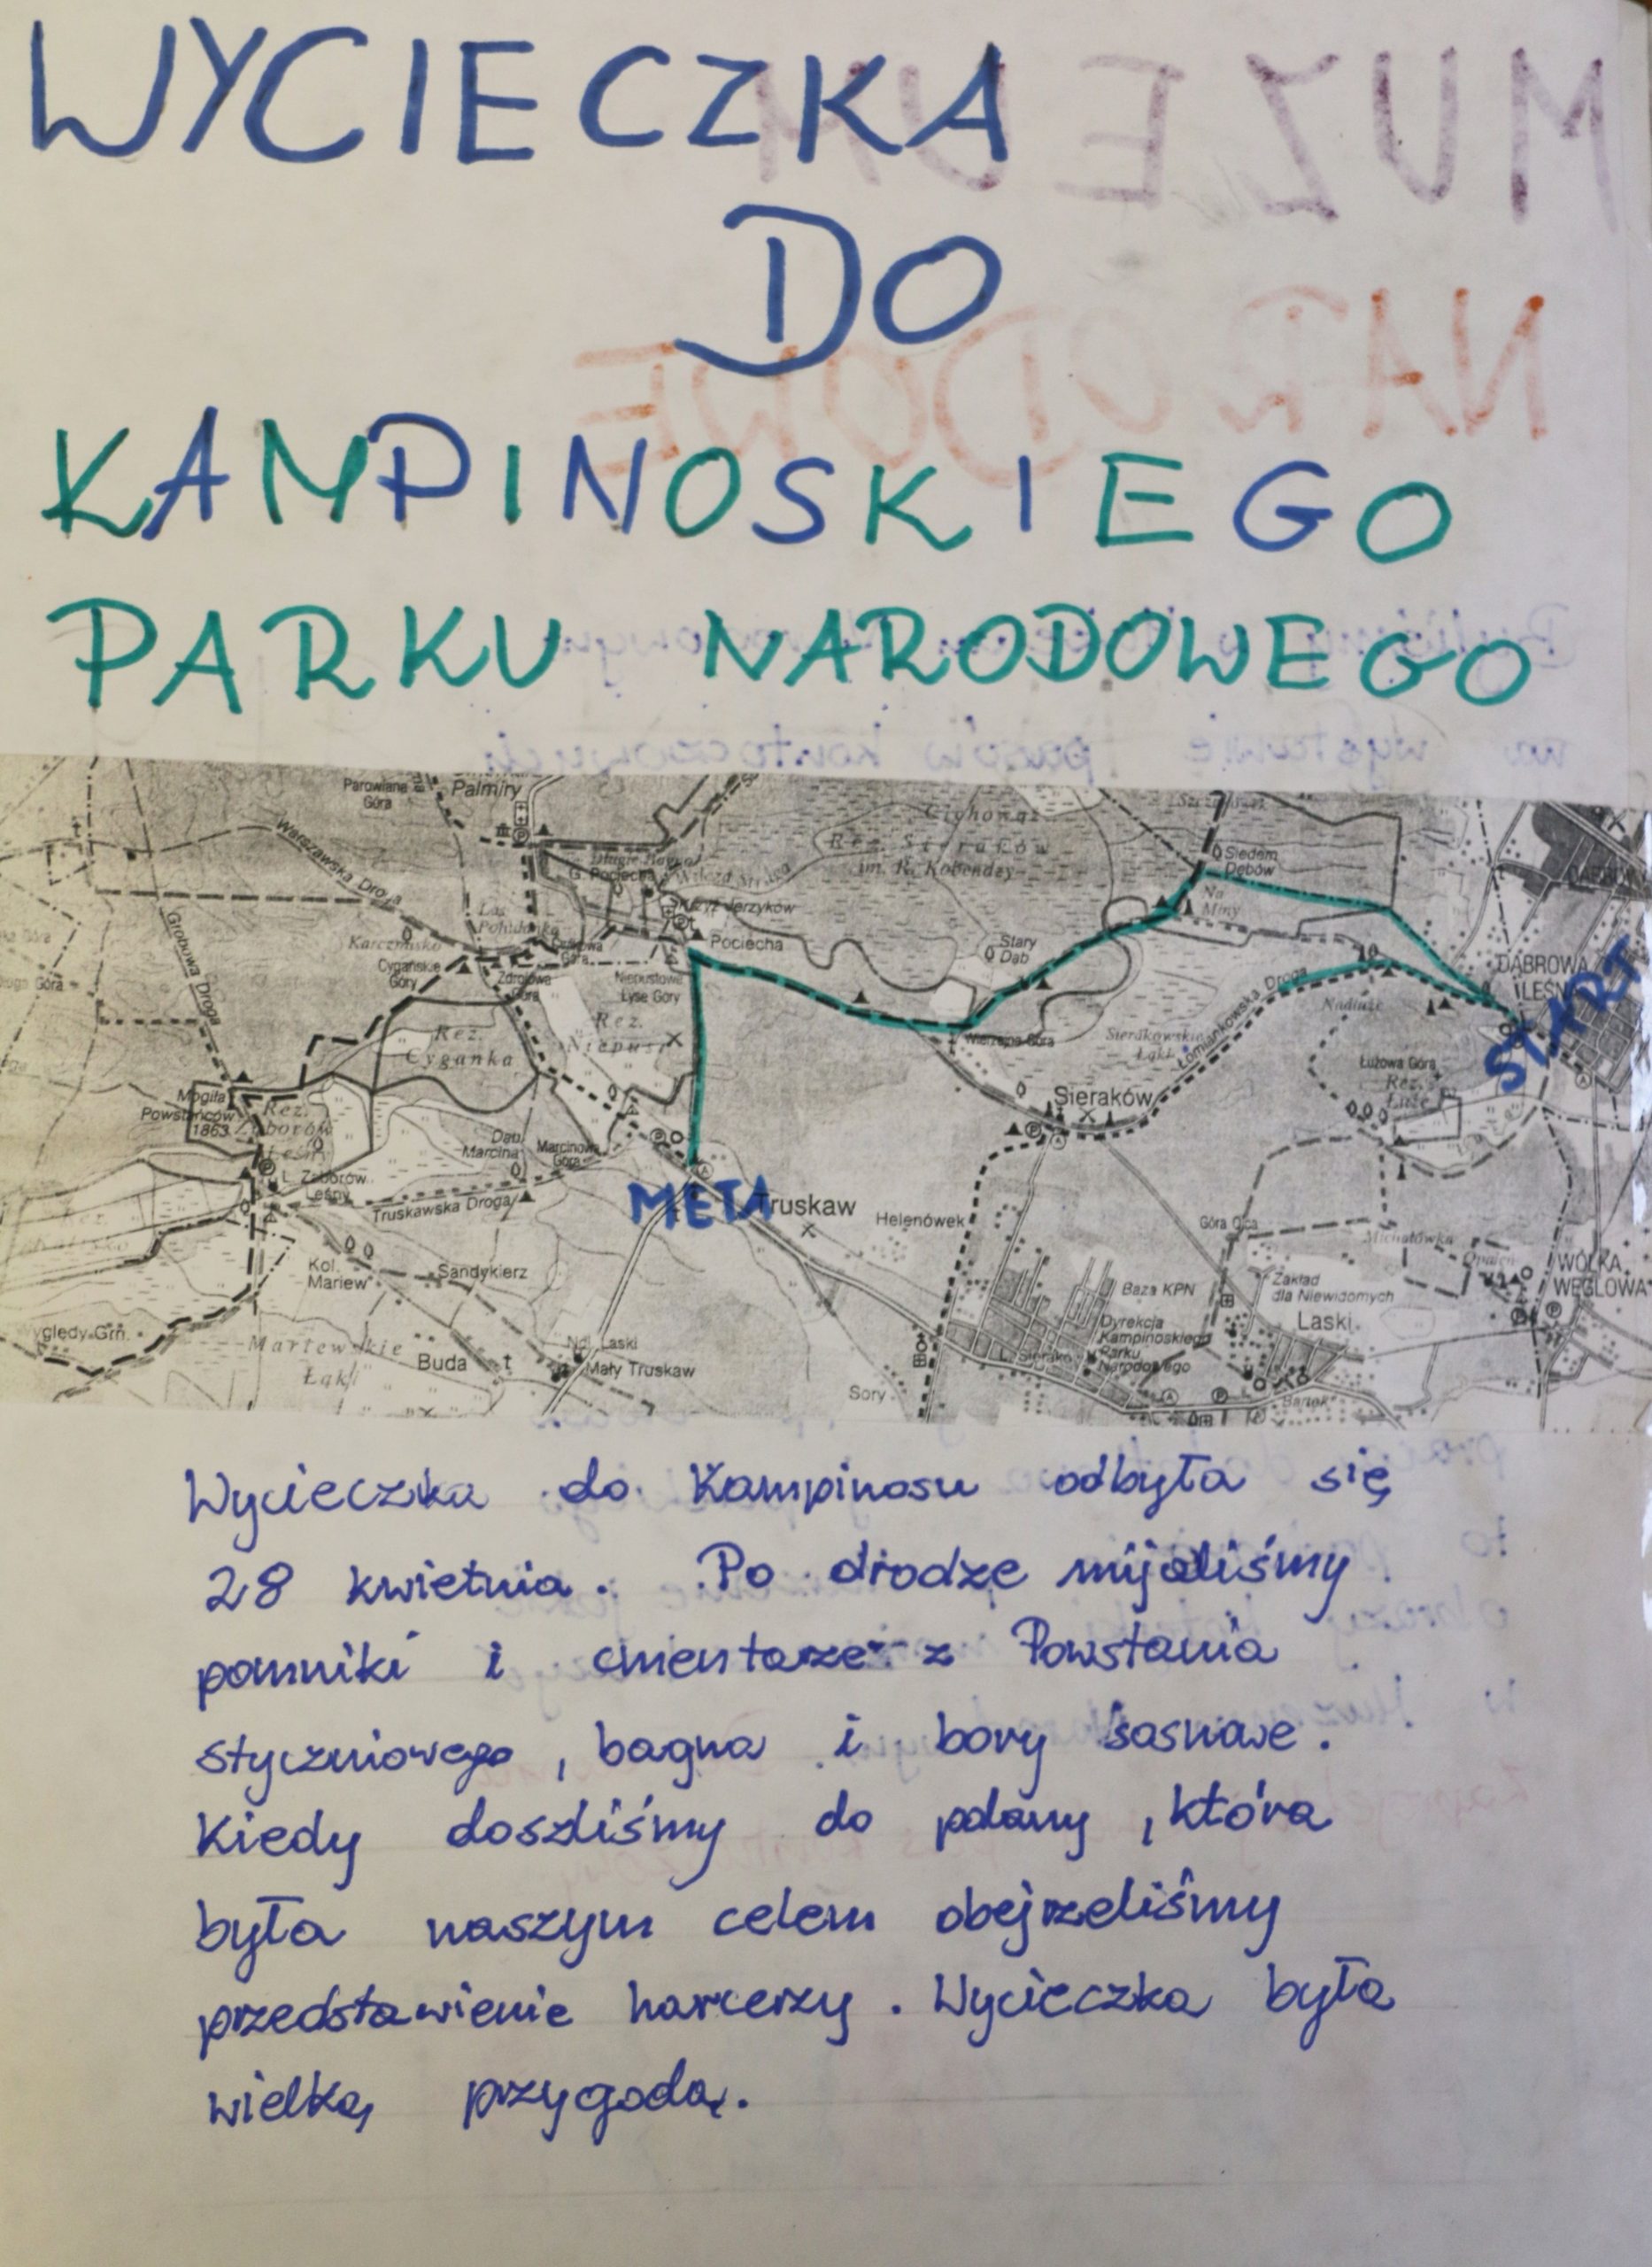 WYCIECZKA
DO
KAMPINOSKIEGO
PARKU NARODOWEGO
Parowiana Góra
Palmiry
Warszawska Droga
Grobowa Droga
G. Pociecha
Rez. Sieraków
im. R. Kobendzy
Siedem Dębów
Na Miny
Pociecha
Stary Dąb
Karczmisko
Cygańskie Góry
Niepustowe
Łyse Góry
Rez. Cyganka
Wierzejna Góra
Sierakowskie Łąki
Łomiankowska Droga
Nadłuże
DĄBROWA LEŚNA
START
Łużowa Góra
Rez.
Sieraków
Mogiła Powstańców 1863
Dąb Marcina
Marcinowa Góra
Zaborów Leśny
Truskawska Droga
META
Truskaw
Helenówek
Góra Ojca
Michałówka
Opaleń
WÓLKA WĘGLOWA
Kol. Mariew
Sandykierz
Baza KPN
Zakład dla Niewidomych
Laski
Dyrekcja Kampinoskiego Parku Narodowego
Mariewskie Łąki
Buda
Mały Truskaw
Sory
Wycieczka do Kampinosu odbyła się
28 kwietnia. Po drodze mijaliśmy
pomniki i cmentarze z Powstania
styczniowego, bagna i bory sosnowe.
Kiedy doszliśmy do polany, która
była naszym celem obejrzeliśmy
przedstawienie harcerzy. Wycieczka była
wielką przygodą.